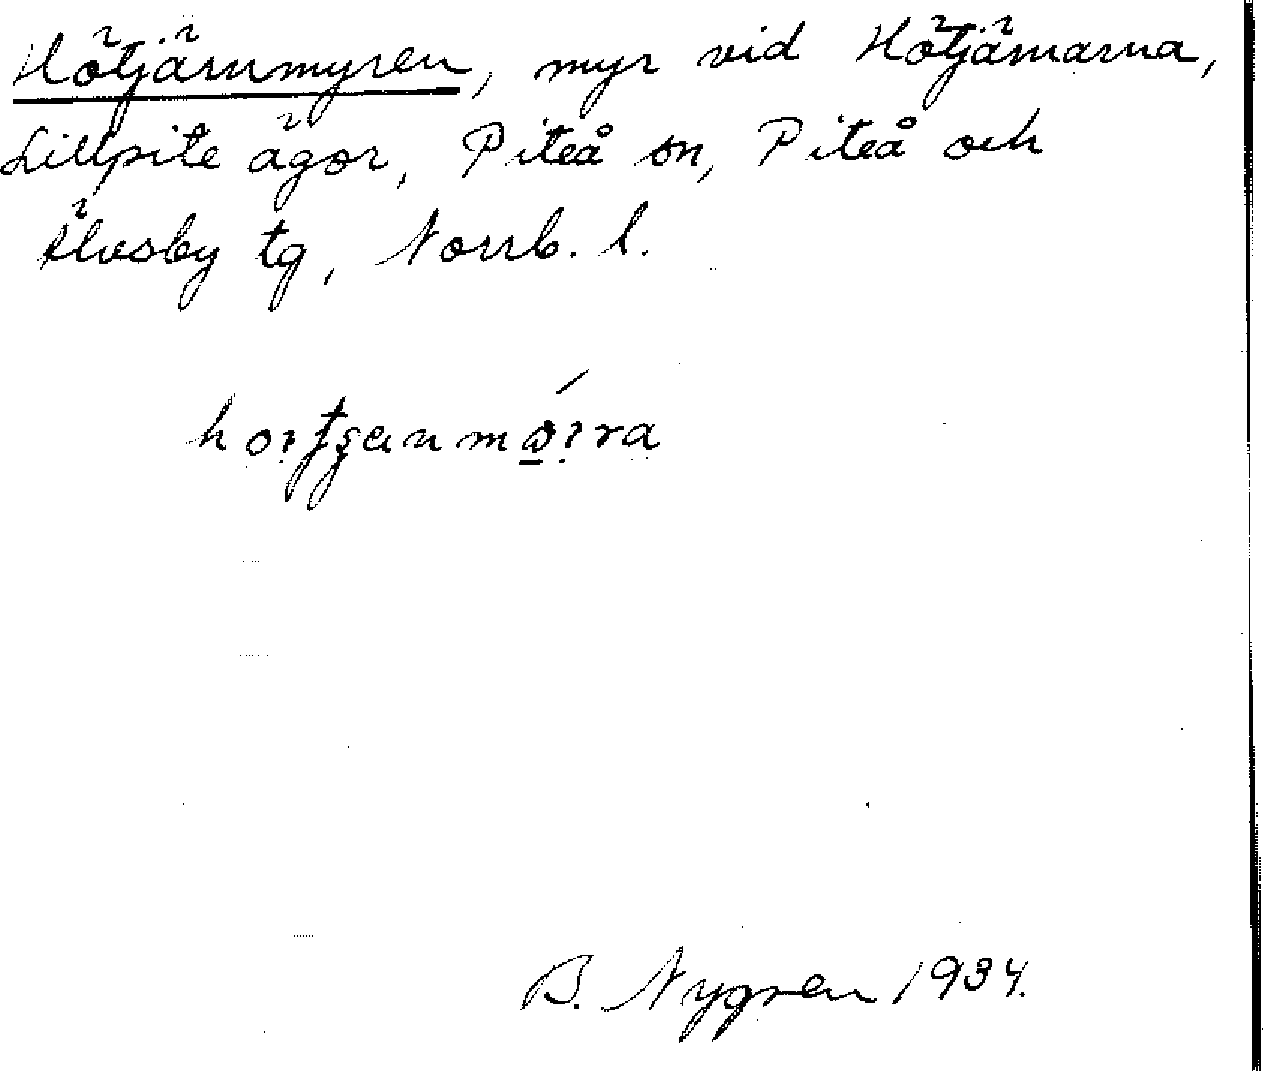 Hötjärnmyren, myr vid Hötjärnarna,
Lillpite ägor, Piteå sn, Piteå och
Älvsby tg, Norrb. l.
B. Nygren 1934.